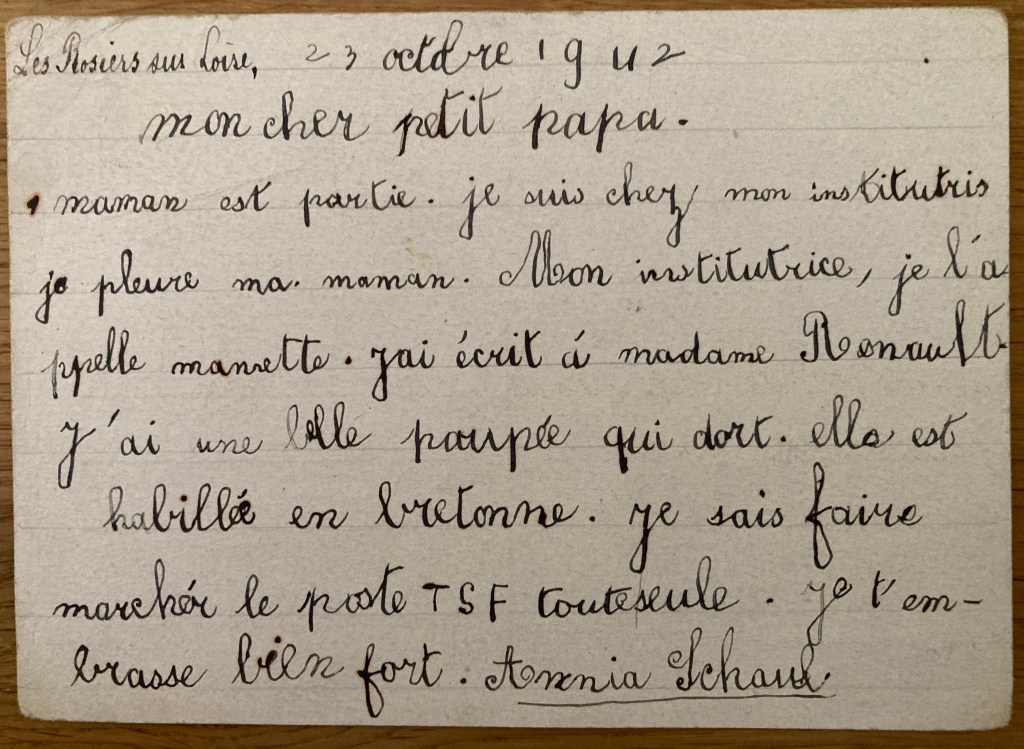 Les Rosiers sur Loire, 23 octobre 1942
mon cher petit papa.
maman est partie. je suis chez mon institutris
je pleure ma. maman. Mon institutrice, je l'a
ppelle mamette. j'ai écrit á madame Renault.
J'ai une belle poupée qui dort. elle est
habillée en bretonne. je sais faire
marchér le poste TSF touteseule. Je t'em-
brasse bien fort. Annnia Schaul